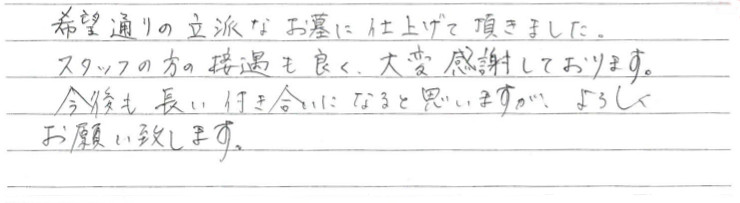 希望通りの立派なお墓に仕上げて頂きました。
スタッフの方の接遇も良く、大変感謝しております。
今後も長い付き合いになると思いますが、よろしく
お願い致します。